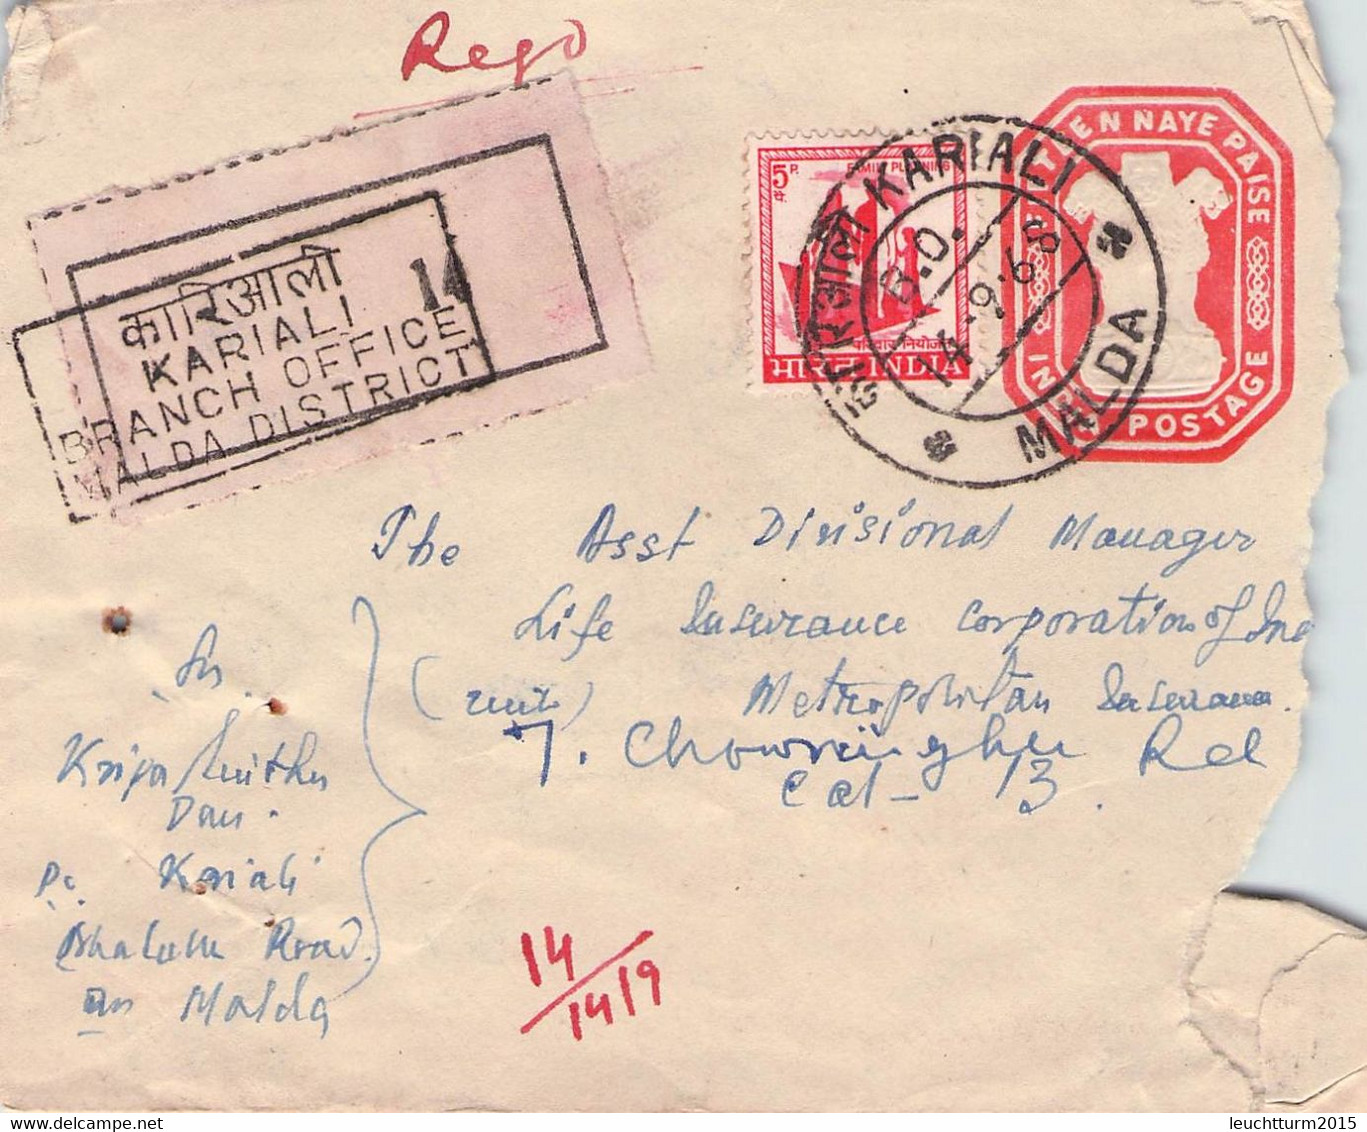 Rego
कारिआली
KARIALI 14
BRANCH OFFICE
MALDA DISTRICT
5 P.
FAMILY PLANNING
परिवार नियोजन
भारत INDIA
KARIALI
B.O.
14-9-68
MALDA
TEN NAYE PAISE
POSTAGE
The Asst Divisional Manager
Life Insurance Corporation of Ind
(unit) Metropolitan Insurance.
7. Chowringhee Rd
Cal- 13.
Kariali
Road.
Malda
14
14/9
leuchtturm2015